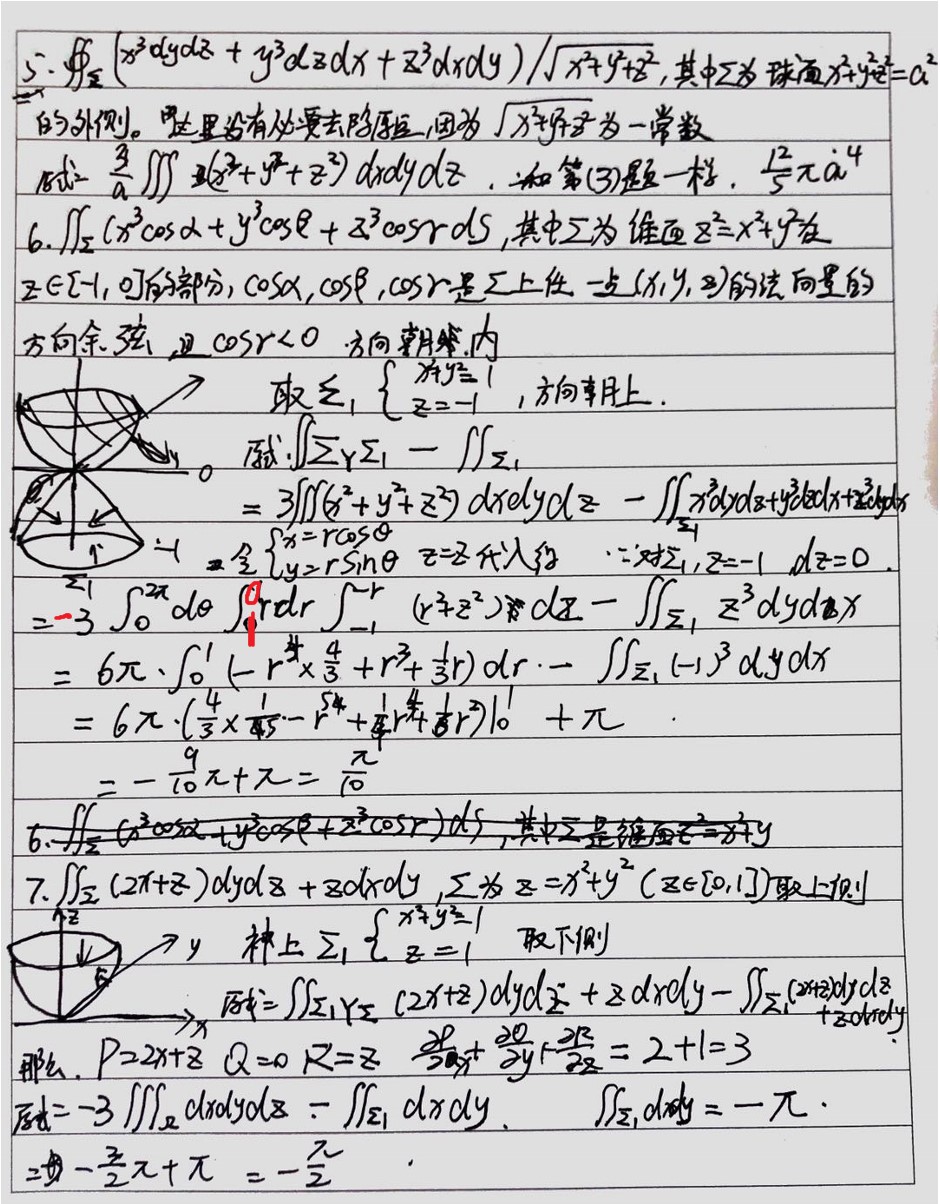 5. ∯_Σ (x³dydz + y³dzdx + z³dxdy)/√(x²+y²+z²), 其中Σ为球面x²+y²+z²=a²
的外侧。这里没有必要去除原点,因为√(x²+y²+z²)为一常数
原式= 3/a ∭ (x²+y²+z²) dxdydz. 和第(3)题一样. 12/5 πa⁴
6. ∬_Σ (x³cosα + y³cosβ + z³cosγ dS, 其中Σ为锥面z²=x²+y²在
z∈[-1, 0]的部分, cosα, cosβ, cosγ是Σ上任一点(x, y, z)的法向量的
方向余弦 且 cosγ<0 方向朝内
取Σ₁ { x²+y²=1 z=-1 , 方向朝上.
y 0
原式 ∬Σ∪Σ₁ - ∬_Σ₁
= 3∭(x²+y²+z²) dxdydz - ∬_Σ₁ x³dydz+y³dzdx+z³dydx
-1 Σ₁ 令 { x=rcosθ y=rsinθ z=z 代入得 ∵对Σ₁, z=-1 dz=0.
= -3 ∫₀^2π dθ ∫ rdr ∫₋₁^-r (r²+z²) dz - ∬_Σ₁ z³dydx
= 6π·∫₀¹ (-r⁴×4/3 + r³ + 1/3 r) dr - ∬_Σ₁ (-1)³ dydx
= 6π·(4/3 × 1/5 - r⁵ + 1/4 r⁴ + 1/6 r²)|₀¹ + π
= - 9/10 π + π = π/10
6. ∬_Σ (x³cosα + y³cosβ + z³cosγ) dS, 其中Σ是锥面z²=x²+y
7. ∬_Σ (2x+z)dydz + zdxdy, Σ为 z=x²+y² (z∈[0,1])取上侧
z y x 补上 Σ₁ { x²+y²=1 z=1 取下侧
原式=∬_Σ₁∪Σ (2x+z)dydz + zdxdy - ∬_Σ₁ (2x+z)dydz + zdxdy
那么. P=2x+z Q=0 R=z ∂P/∂x + ∂Q/∂y + ∂R/∂z = 2+1=3
原式= -3 ∭_Ω dxdydz - ∬_Σ₁ dxdy. ∬_Σ₁ dxdy = -π.
= - 3/2 π + π = - π/2